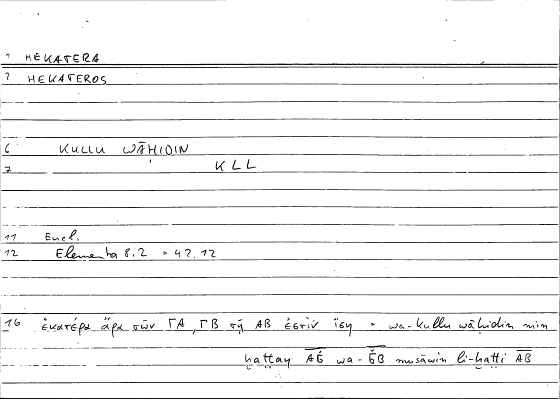 ? HEKATERA
? HEKATEROS
6 KULLU WĀḤIDIN
7 KLL
11 Eucl.
12 Elementa 8.2 = 42.12
16 ἑκατέρα ἄρα τῶν ΓΑ, ΓΒ τῇ ΑΒ ἐστὶν ἴση = wa-kullu wāḥidin min
ḫaṭṭay A͞Ǧ wa-Ǧ͞B musāwin li-ḫaṭṭi A͞B